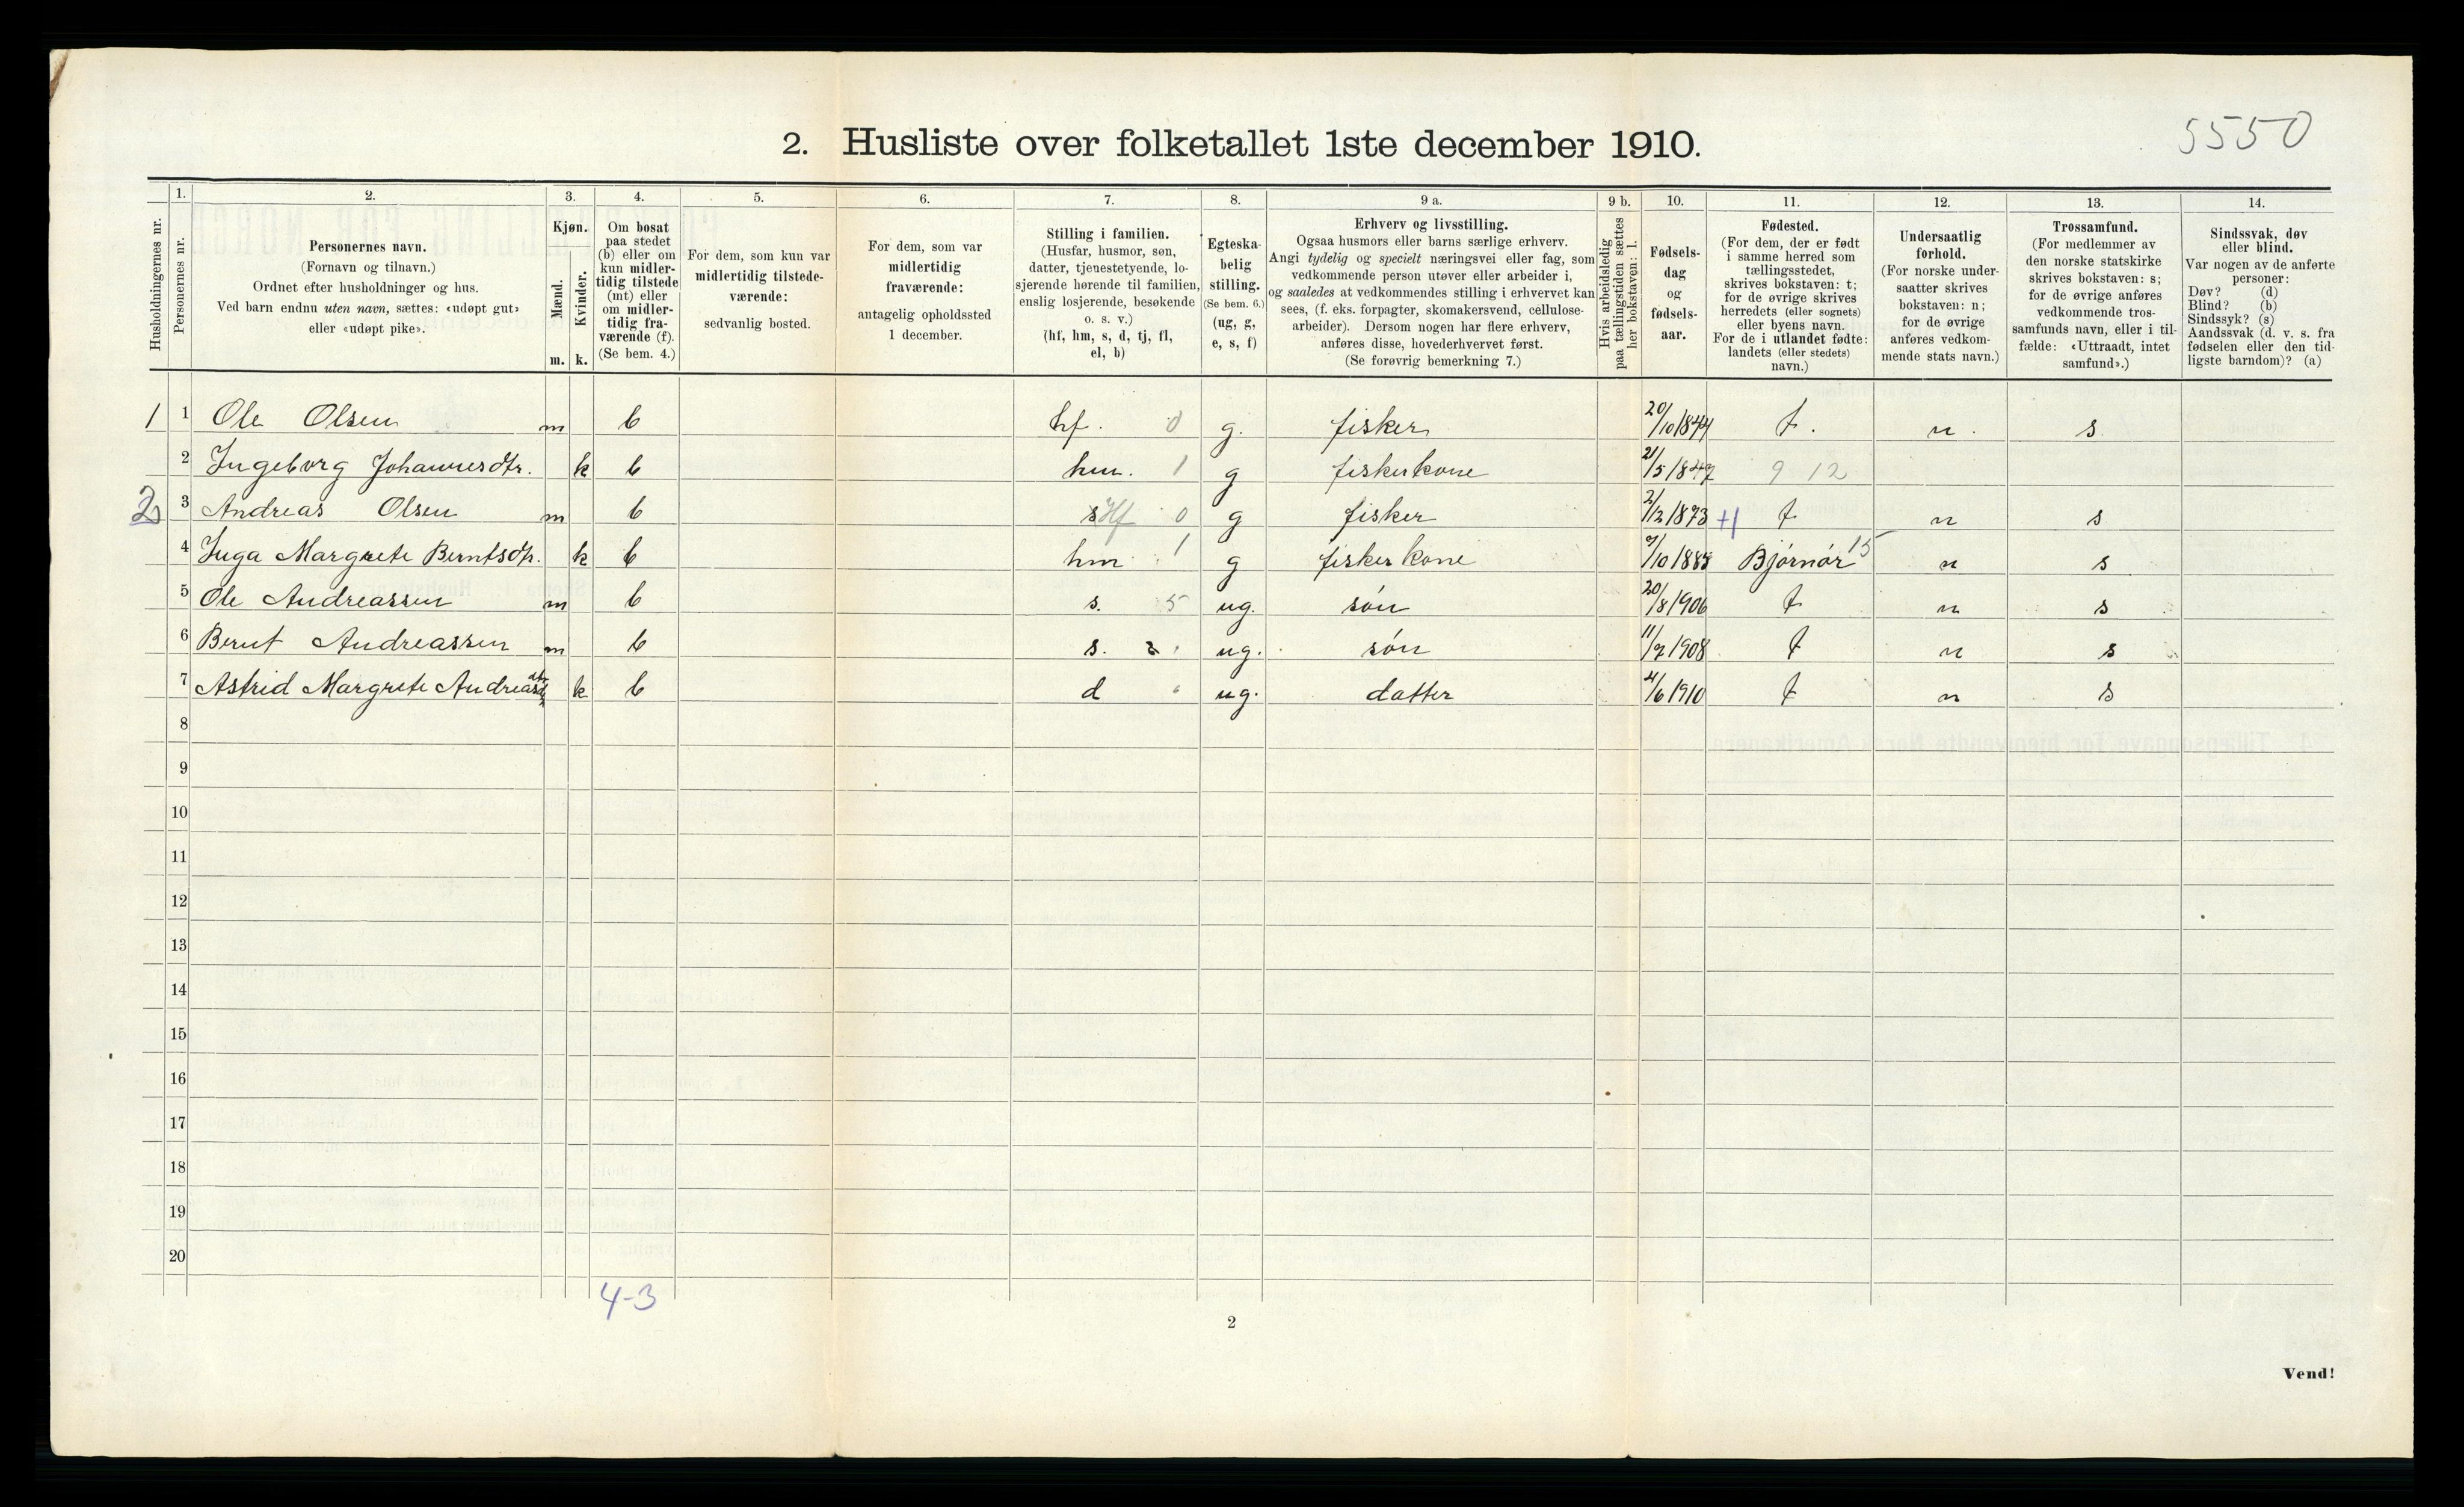 5550
2. Husliste over folketallet 1ste december 1910.
1. 2. 3. 4. 5. 6. 7. 8. 9 a. 9 b. 10. 11. 12. 13. 14.
Husholdningernes nr.
Personernes nr.
Personernes navn.
(Fornavn og tilnavn.)
Ordnet efter husholdninger og hus.
Ved barn endnu uten navn, sættes: «udøpt gut»
eller «udøpt pike».
Kjøn.
Mænd.
Kvinder.
m. k.
Om bosat
paa stedet
(b) eller om
kun midler-
tidig tilstede
(mt) eller
om midler-
tidig fra-
værende (f).
(Se bem. 4.)
For dem, som kun var
midlertidig tilstede-
værende:
sedvanlig bosted.
For dem, som var
midlertidig
fraværende:
antagelig opholdssted
1 december.
Stilling i familien.
(Husfar, husmor, søn,
datter, tjenestetyende, lo-
sjerende hørende til familien,
enslig losjerende, besøkende
o. s. v.)
(hf, hm, s, d, tj, fl,
el, b)
Egteska-
belig
stilling.
(Se bem. 6.)
(ug, g,
e, s, f)
Erhverv og livsstilling.
Ogsaa husmors eller barns særlige erhverv.
Angi tydelig og specielt næringsvei eller fag, som
vedkommende person utøver eller arbeider i,
og saaledes at vedkommendes stilling i erhvervet kan
sees, (f. eks. forpagter, skomakersvend, cellulose-
arbeider). Dersom nogen har flere erhverv,
anføres disse, hovederhvervet først.
(Se forøvrig bemerkning 7.)
Hvis arbeidsledig
paa tællingstiden sættes
her bokstaven: l.
Fødsels-
dag
og
fødsels-
aar.
Fødested.
(For dem, der er født
i samme herred som
tællingsstedet,
skrives bokstaven: t;
for de øvrige skrives
herredets (eller sognets)
eller byens navn.
For de i utlandet fødte:
landets (eller stedets)
navn.)
Undersaatlig
forhold.
(For norske under-
saatter skrives
bokstaven: n;
for de øvrige
anføres vedkom-
mende stats navn.)
Trossamfund.
(For medlemmer av
den norske statskirke
skrives bokstaven: s;
for de øvrige anføres
vedkommende tros-
samfunds navn, eller i til-
fælde: «Uttraadt, intet
samfund».)
Sindssvak, døv
eller blind.
Var nogen av de anførte
personer:
Døv? (d)
Blind? (b)
Sindssyk? (s)
Aandssvak (d. v. s. fra
fødselen eller den tid-
ligste barndom)? (a)
1 1 Ole Olsen m b hf. 0 g. fisker 20/10 1844 t. n. s.
2 Ingeborg Johannesdtr. k b hm. 1 g fiskerkone 21/5 1847 9 12
2 3 Andreas Olsen m b s Hf 0 g fisker 2/12 1873 +1 t n s
4 Inga Margrete Berntsdtr. k b hm 1 g fiskerkone 9/10 1885 Bjórnór 15 n s
5 Ole Andreassen m b s. 5 ug. són 20/8 1906 t n s
6 Bernt Andreassen m b s. ug. són 11/7 1908 t n s
7 Astrid Margrete Andreasdtr k b d ug. datter 4/6 1910 t n s
8
9
10
11
12
13
14
15
16
17
18
19
20
4-3
2
Vend!